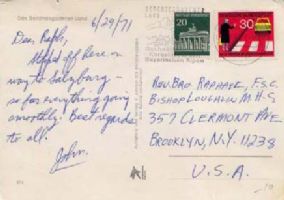 Das Berchtesgadener Land
6/29/71
Dear Ralph,
Stopped off here on
way to Salzburg -
so far everything going
smoothly! Best regards
to all.
John.
BERCHTESGADENER
LAND
20
30
Rev. Bro. Raphael, F.S.C.
Bishop Loughlin M.H.S
357 Clermont Ave.
Brooklyn, N.Y. 11238
U.S.A.